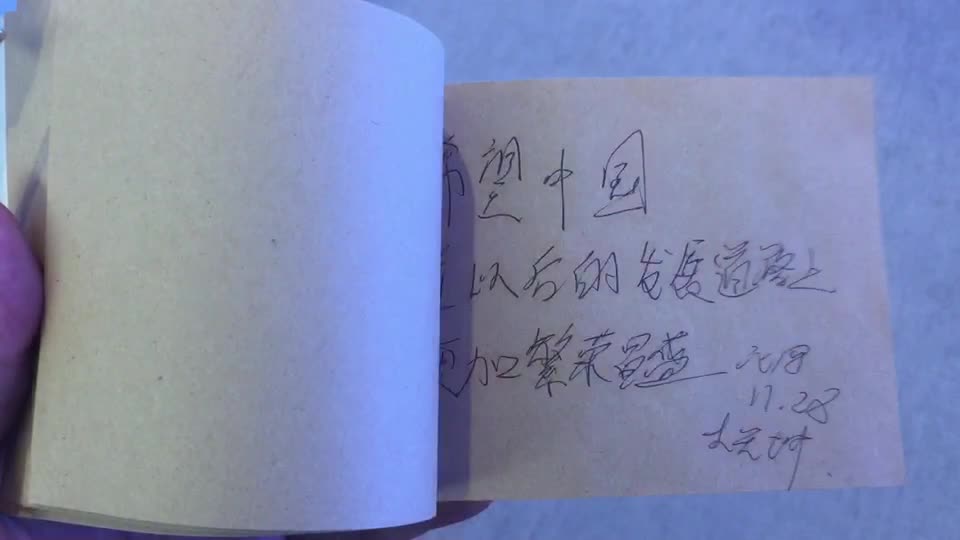 希望中国
在以后的发展道路上
更加繁荣昌盛
11.28